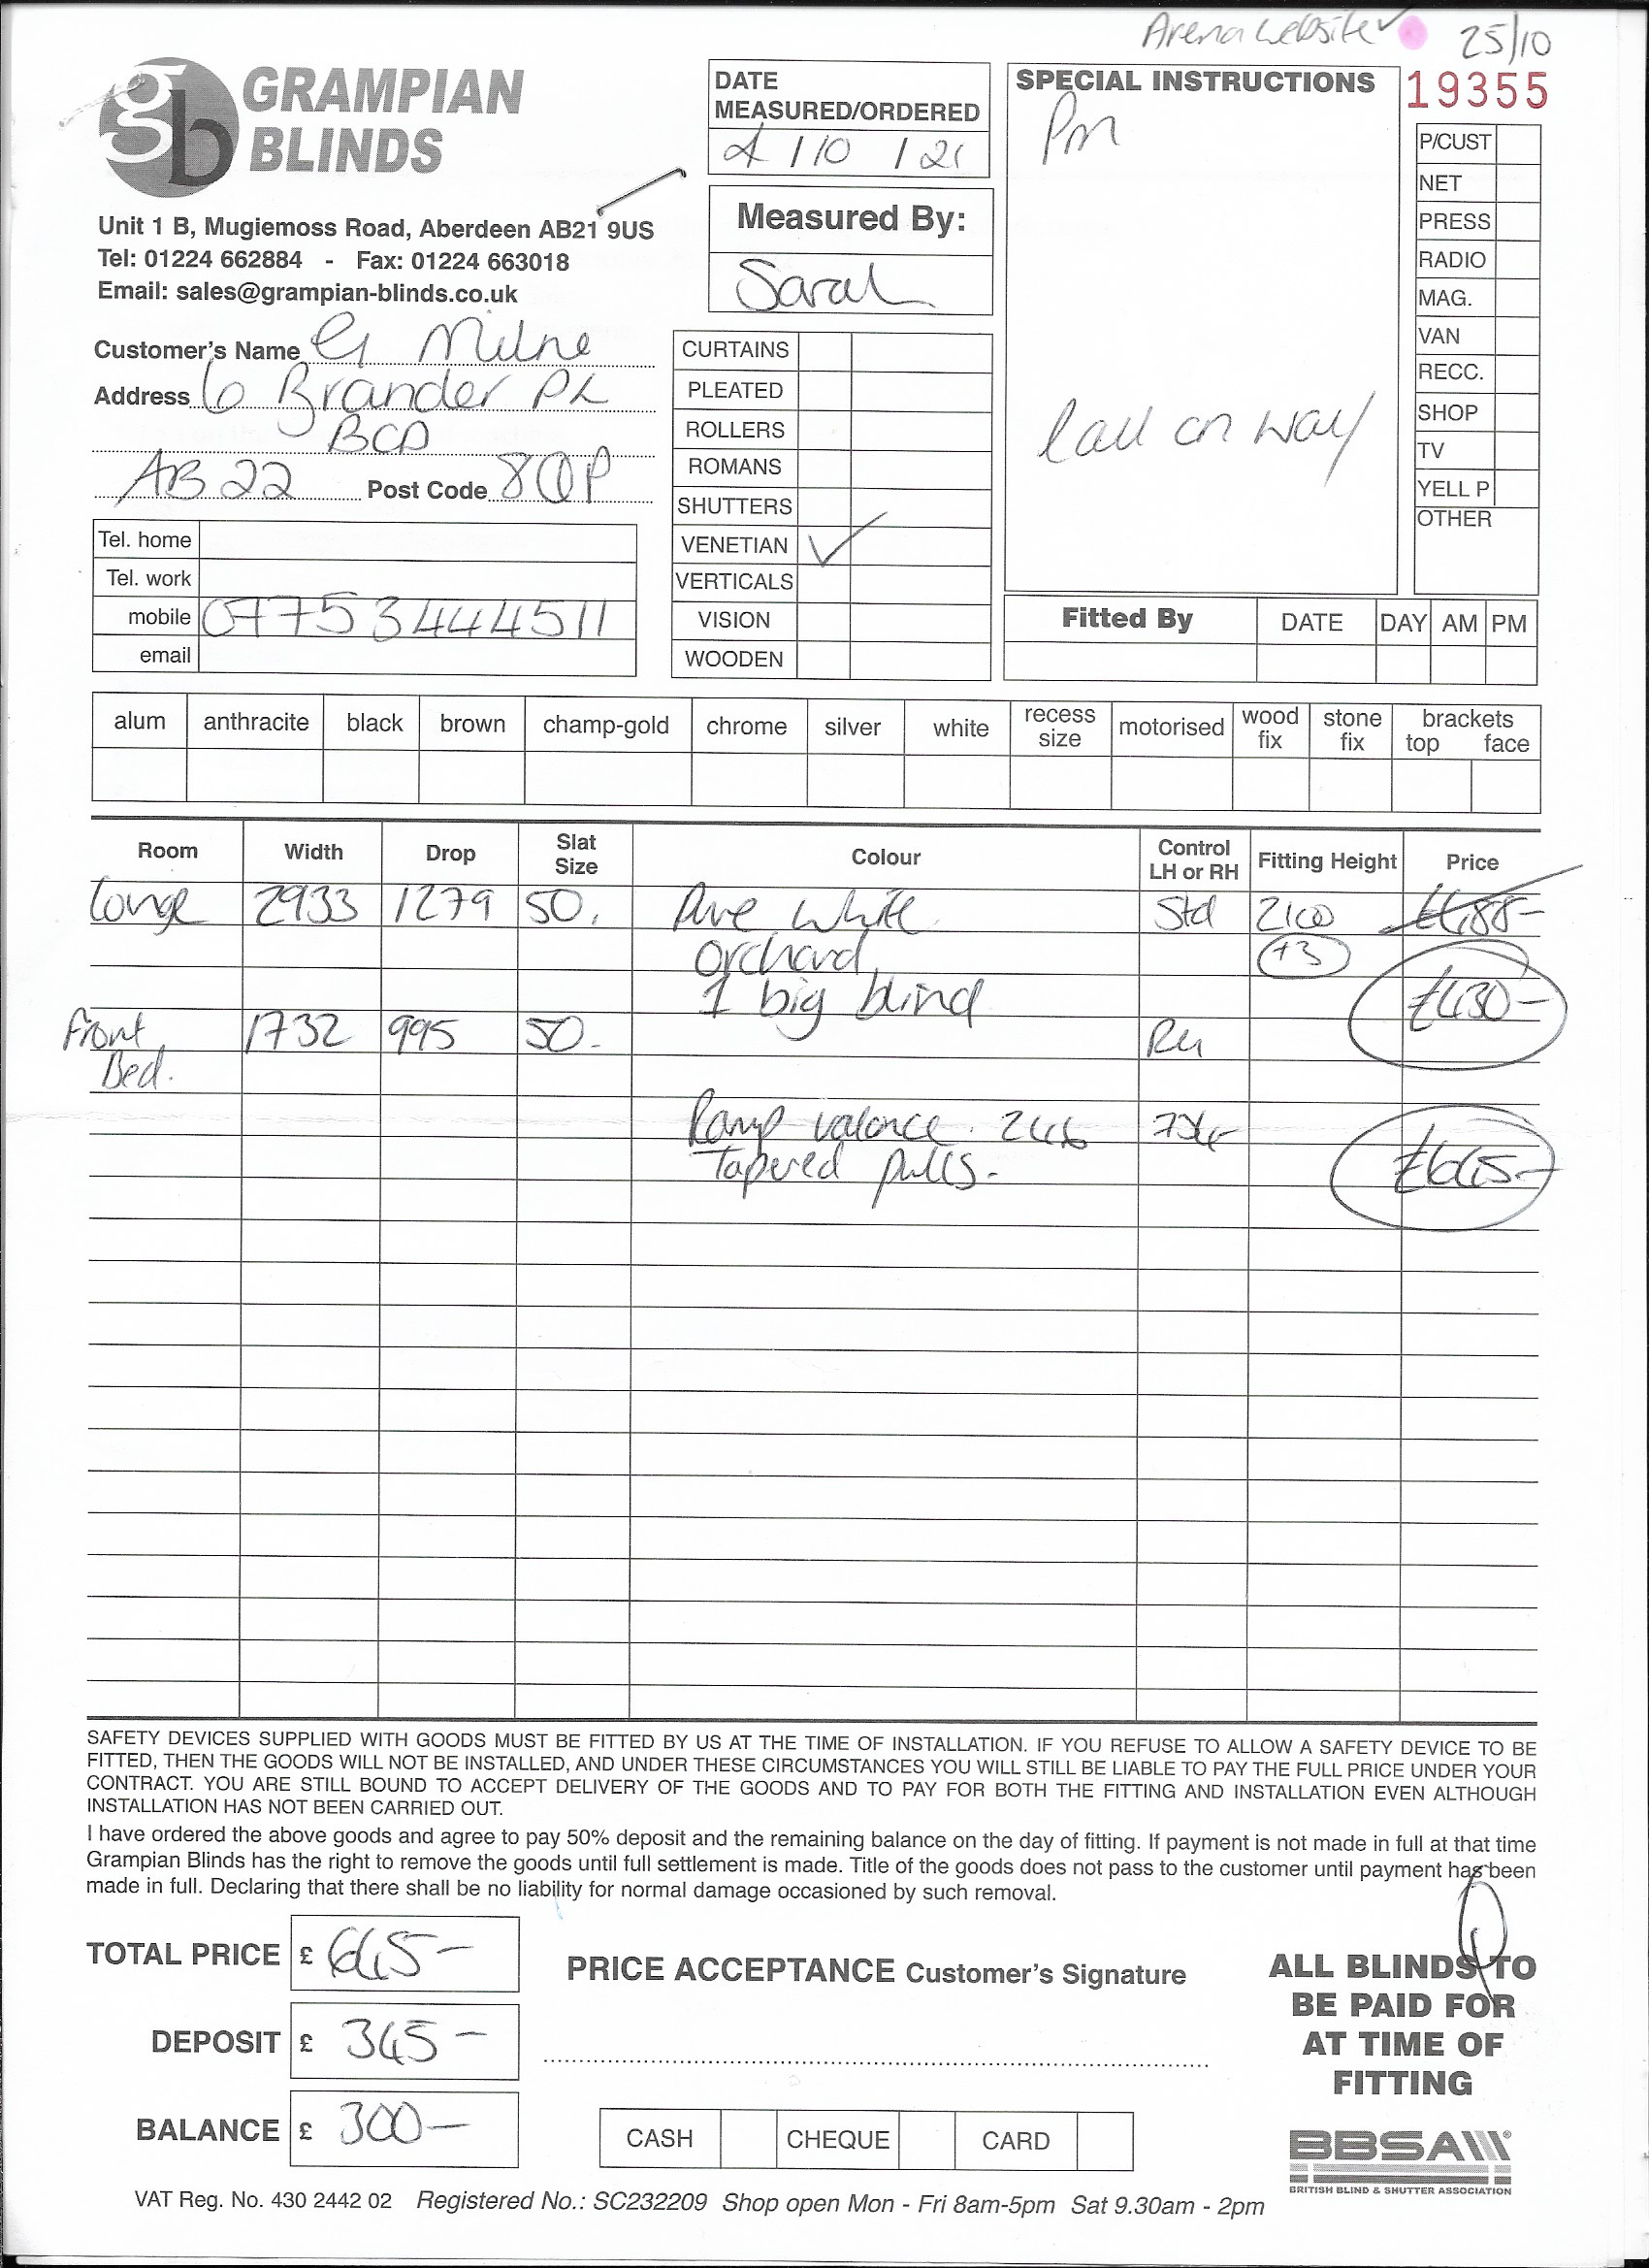 Arena website ✓ 25/10
GRAMPIAN
BLINDS
19355
DATE
MEASURED/ORDERED
/10 / 21
Measured By:
Sarah
SPECIAL INSTRUCTIONS
Pm
Call on way
P/CUST
NET
PRESS
RADIO
MAG.
VAN
RECC.
SHOP
TV
YELL P
OTHER
Unit 1 B, Mugiemoss Road, Aberdeen AB21 9US
Tel: 01224 662884 - Fax: 01224 663018
Email: sales@grampian-blinds.co.uk
Customer's Name G Milne
Address 6 Brander PL
BOD
AB22 Post Code 8QP
Tel. home
Tel. work
mobile 07753444511
email
CURTAINS
PLEATED
ROLLERS
ROMANS
SHUTTERS
VENETIAN ✓
VERTICALS
VISION
WOODEN
Fitted By DATE DAY AM PM
alum anthracite black brown champ-gold chrome silver white recess size motorised wood fix stone fix brackets top face
Room Width Drop Slat Size Colour Control LH or RH Fitting Height Price
Lounge 2933 1279 50. Pure white Std 2100 £488-
Orchard, +3
1 big blind £430-
Front 1732 995 50. RH
Bed.
Ramp valance.
Tapered pulls. £645-
SAFETY DEVICES SUPPLIED WITH GOODS MUST BE FITTED BY US AT THE TIME OF INSTALLATION. IF YOU REFUSE TO ALLOW A SAFETY DEVICE TO BE
FITTED, THEN THE GOODS WILL NOT BE INSTALLED, AND UNDER THESE CIRCUMSTANCES YOU WILL STILL BE LIABLE TO PAY THE FULL PRICE UNDER YOUR
CONTRACT. YOU ARE STILL BOUND TO ACCEPT DELIVERY OF THE GOODS AND TO PAY FOR BOTH THE FITTING AND INSTALLATION EVEN ALTHOUGH
INSTALLATION HAS NOT BEEN CARRIED OUT.
I have ordered the above goods and agree to pay 50% deposit and the remaining balance on the day of fitting. If payment is not made in full at that time
Grampian Blinds has the right to remove the goods until full settlement is made. Title of the goods does not pass to the customer until payment has been
made in full. Declaring that there shall be no liability for normal damage occasioned by such removal.
TOTAL PRICE £ 645-
DEPOSIT £ 345-
BALANCE £ 300-
PRICE ACCEPTANCE Customer's Signature
CASH CHEQUE CARD
ALL BLINDS TO
BE PAID FOR
AT TIME OF
FITTING
BBSA
BRITISH BLIND & SHUTTER ASSOCIATION
VAT Reg. No. 430 2442 02 Registered No.: SC232209 Shop open Mon - Fri 8am-5pm Sat 9.30am - 2pm